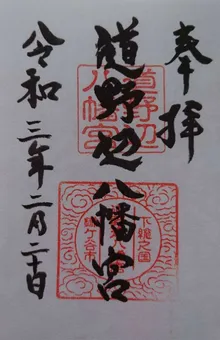 奉拝
道野辺八幡宮
令和三年二月二十日
道野辺
八幡宮
下総之国
鎌ヶ谷市